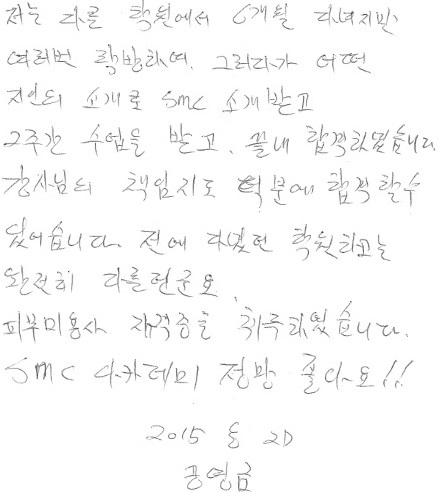 저는 다른 학원에서 6개월 다녀지만
여러번 락방하여. 그러다가 어떤
지인의 소개로 SMC 소개받고
2주간 수업을 받고, 끝내 합격하였습니다
강사님의 책임지도 덕분에 합격할수
있어습니다. 전에 다녔던 학원하고는
완전히 다를헌군요
피부미용사 자격증을 취득하였습니다.
SMC 아카데미 정망 졸아요!!
2015 5 20
공영금